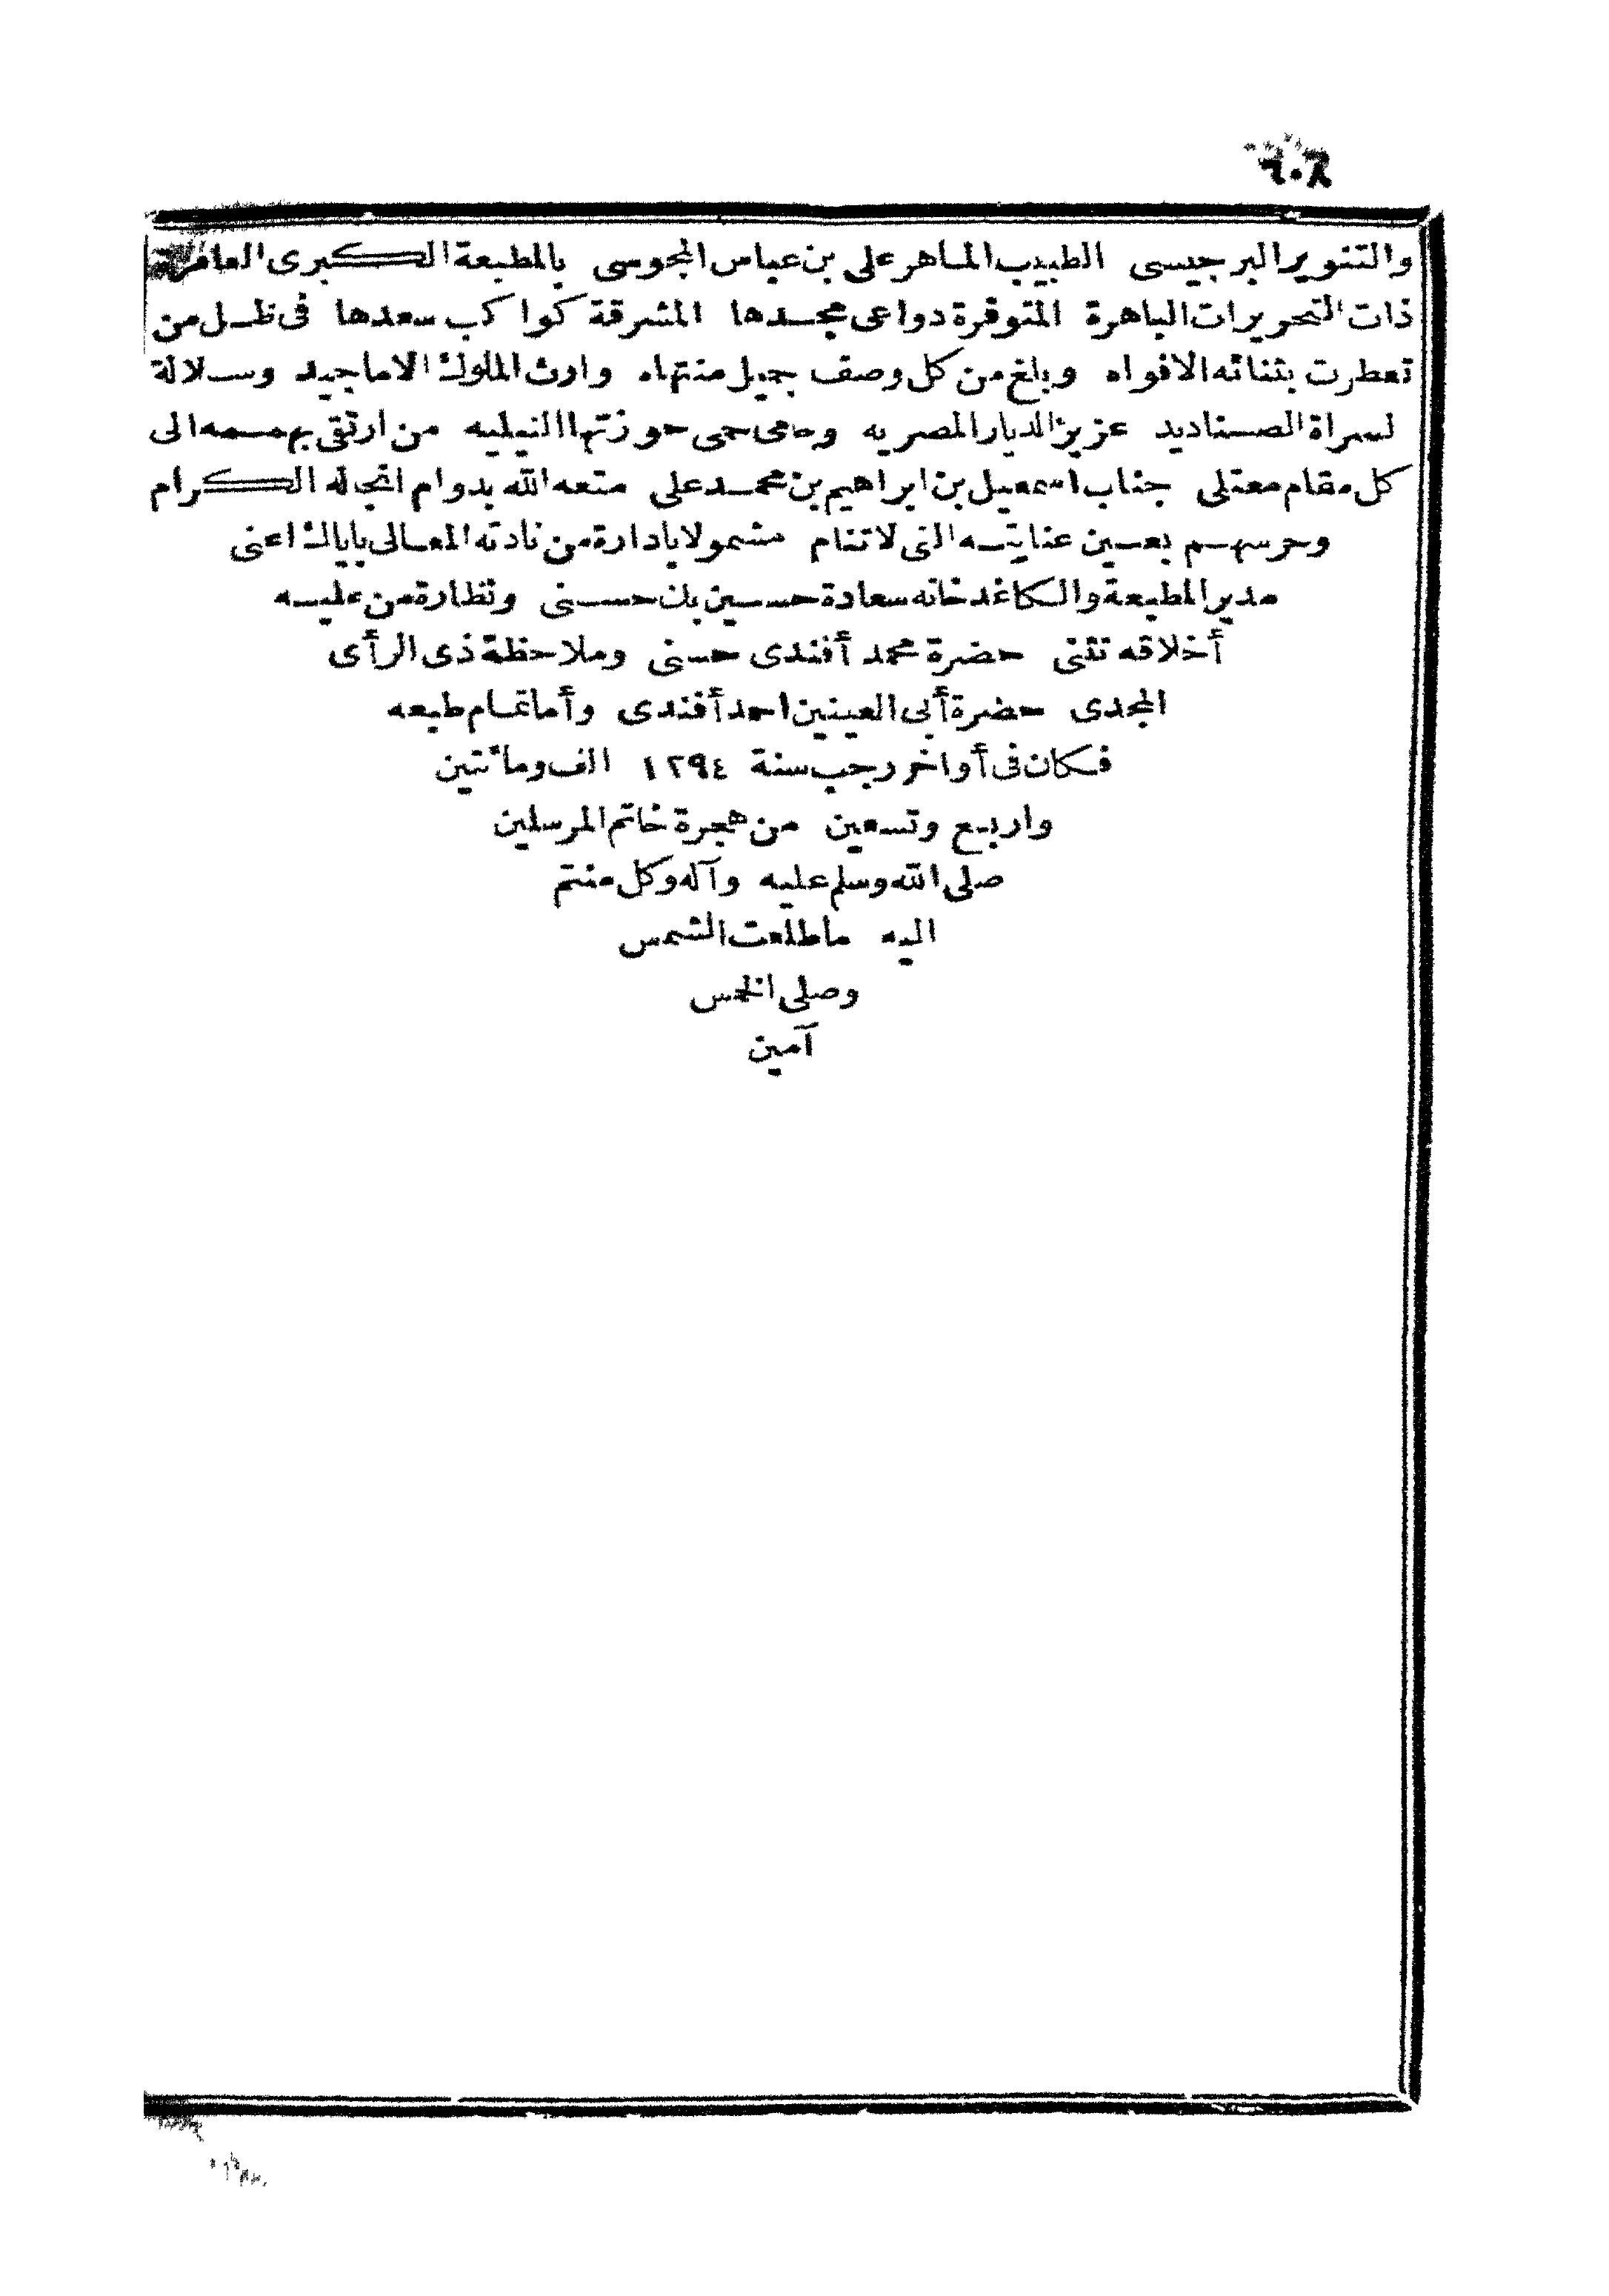 ٦٠٨
والتنوير البرجيسى الطبيب الماهر على بن عباس المجوسى بالمطبعة الكبرى العامرة
ذات التحريرات الباهرة المتوفرة دواعى مجدها المشرقة كواكب سعدها فى ظل من
تعطرت بثنائه الافواه وبلغ من كل وصف جميل منتهاه وارث الملوك الاماجيد وسلالة
لسراة الصناديد عزيز الديار المصريه وحامى حمى حوزتها النيليه من ارتقى بهممه الى
كل مقام معتلى جناب اسمعيل بن ابراهيم بن محمد على متعه الله بدوام انجاله الكرام
وحرسهم بعين عنايته التى لاتنام مشمولا بادارة من نادته المعالى باياك اعنى
مدير المطبعة والكاغدخانه سعادة حسين بك حسنى ونظارة من عليه
أخلاقه تثنى حضرة محمد أفندى حسنى وملاحظة ذى الرأى
المجدى حضرة أبى العينين احمد أفندى وأما تمام طبعه
فكان فى أواخر رجب سنة ١٢٩٤ الف ومائتين
واربع وتسعين من هجرة خاتم المرسلين
صلى الله وسلم عليه وآله وكل منتم
اليه ماطلعت الشمس
وصلى الخمس
آمين